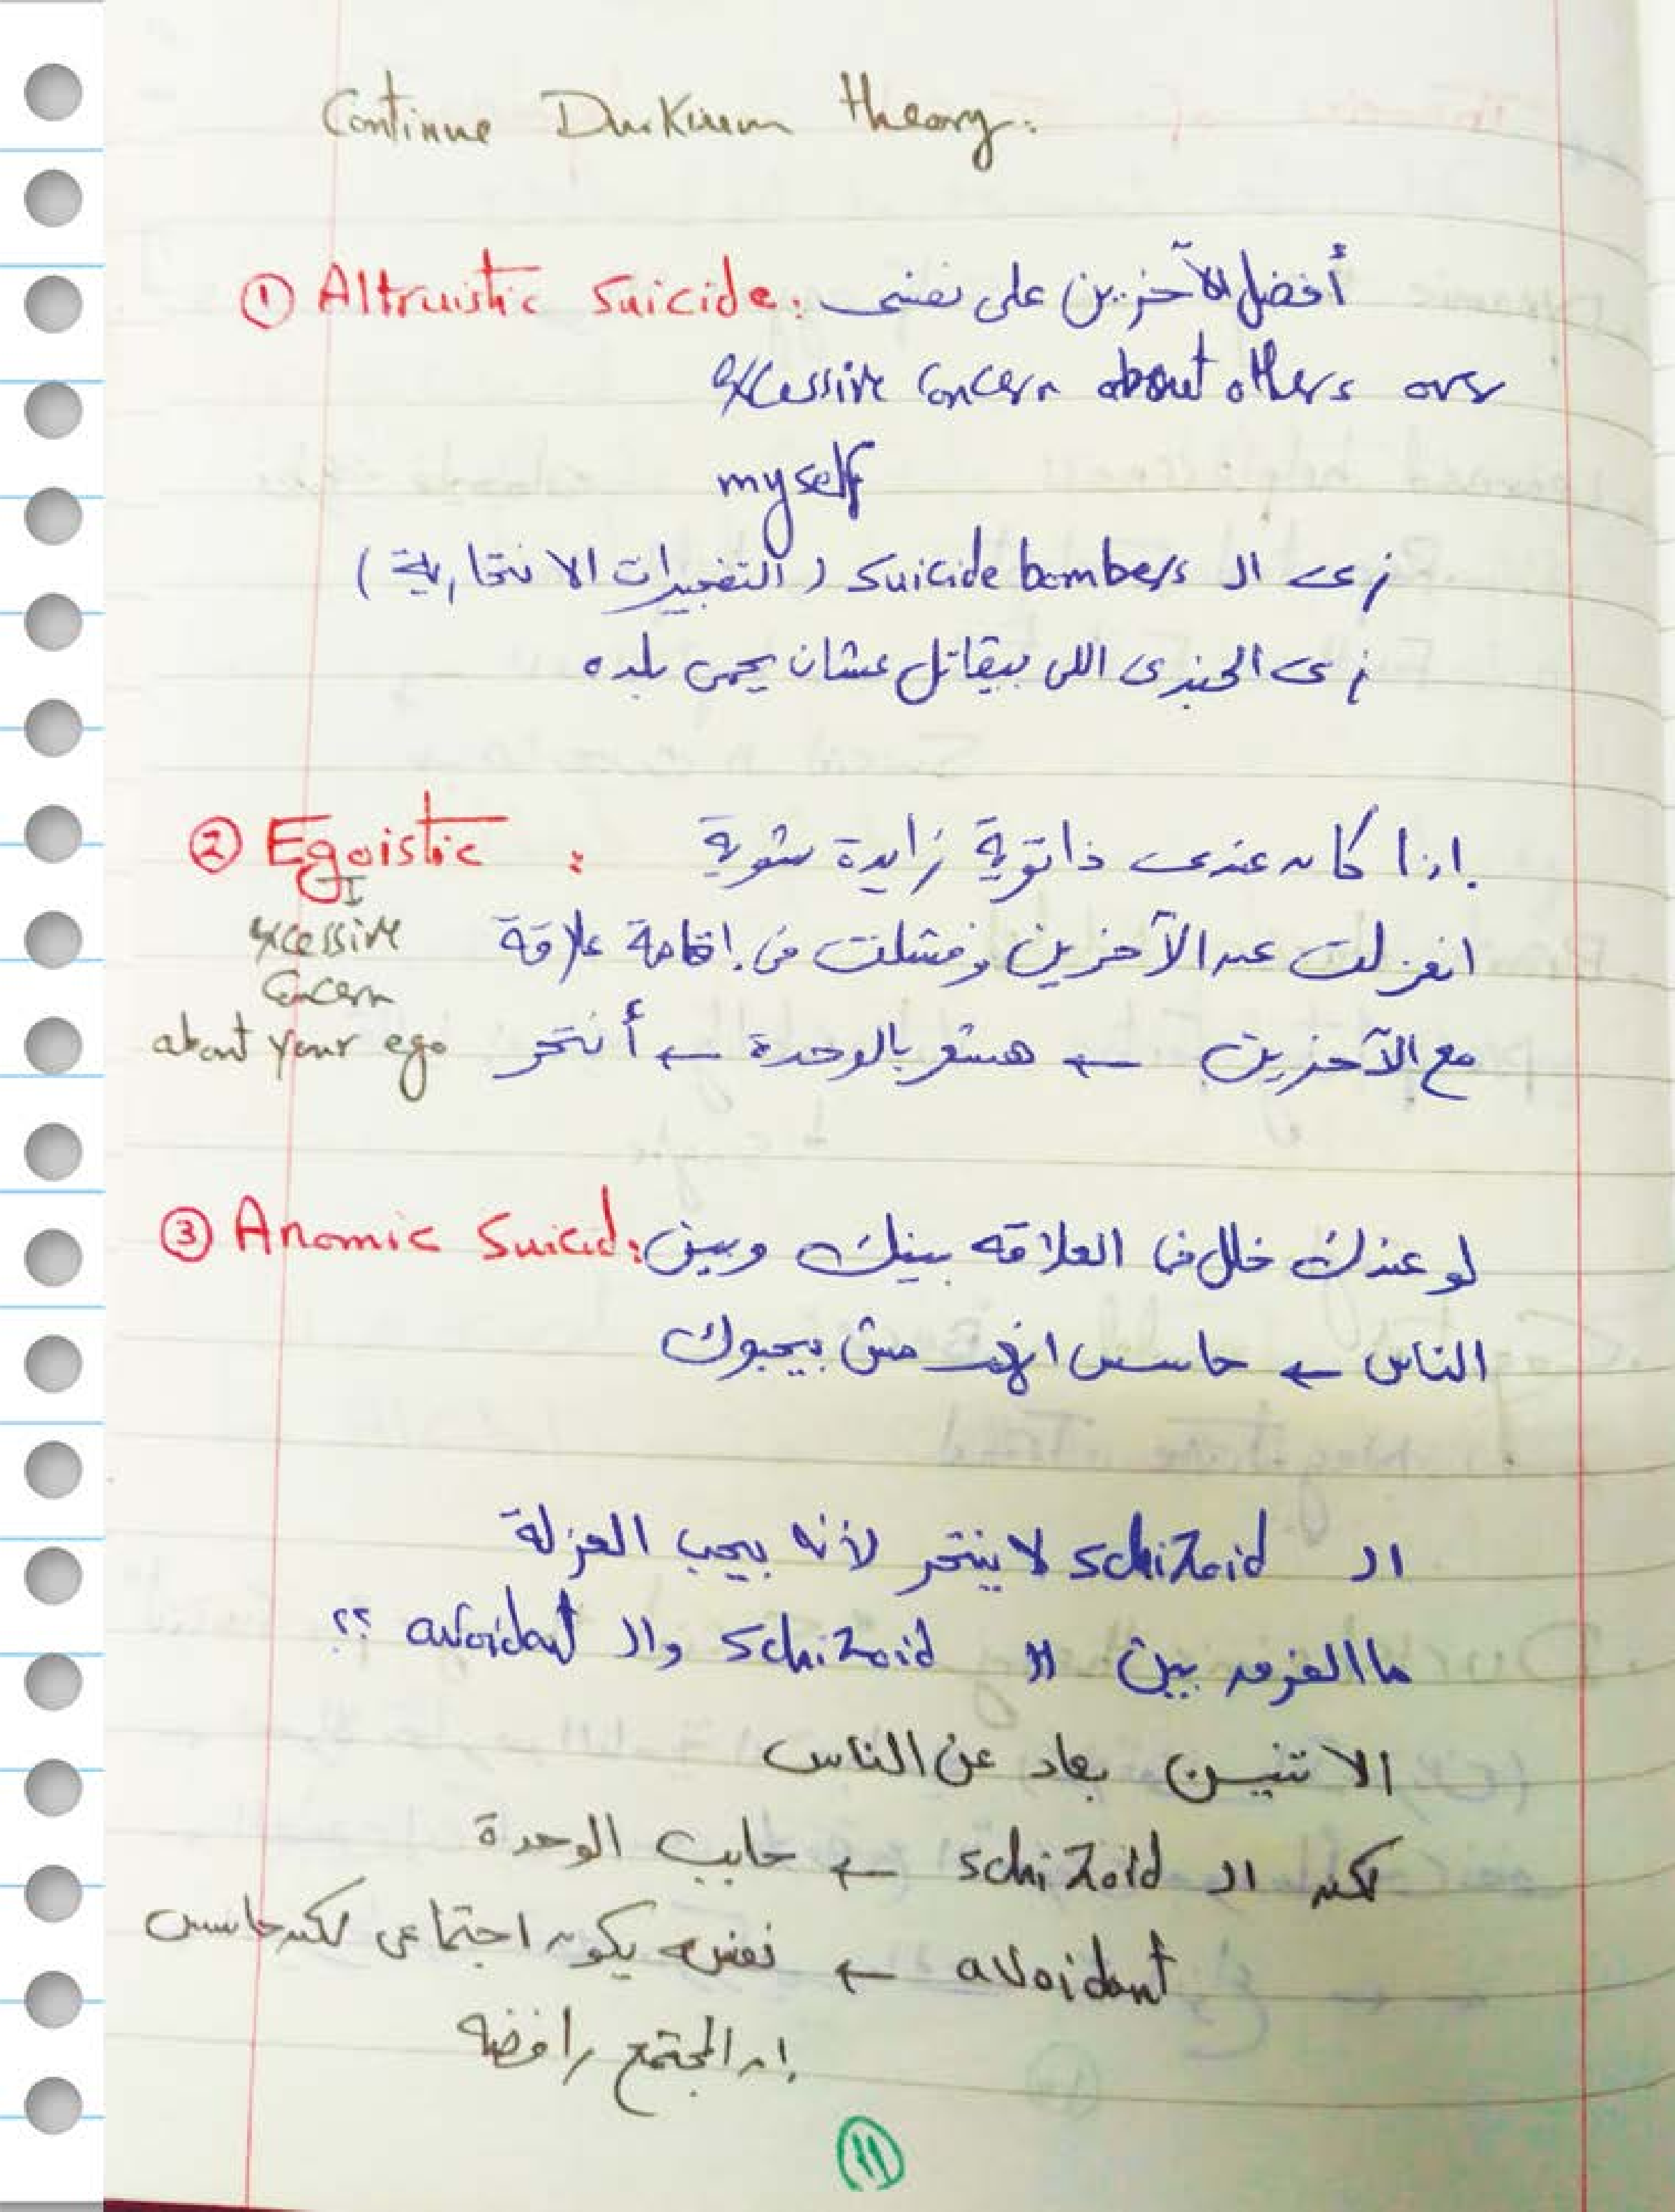 Continue Durkiem theory:
① Altruistic suicide: أفضل الآخرين على نفسى
excessive concern about others over
myself
زى الـ suicide bombers (التفجيرات الانتحارية)
زى الجندى اللى بيقاتل عشان يحمى بلده
② Egoistic : إذا كان عندى ذاتوية زايدة شوية
I
excessive
انعزلت عن الآخرين وفشلت فى إقامة علاقة
concern
about your ego
مع الآخرين ← هشعر بالوحدة ← أنتحر
③ Anomic Suicid: لو عندك خلل فى العلاقه بينك وبين
الناس ← حاسس انهم مش بيحبوك
الـ schizoid لا ينتحر لأنه بيحب العزلة
ما الفرق بين الـ schizoid والـ avoidant ؟؟
الاتنين بعاد عن الناس
لكن الـ schizoid ← حابب الوحدة
avoidant ← نفسه يكون اجتماعى لكن حاسس
إن المجتمع رافضه
١١